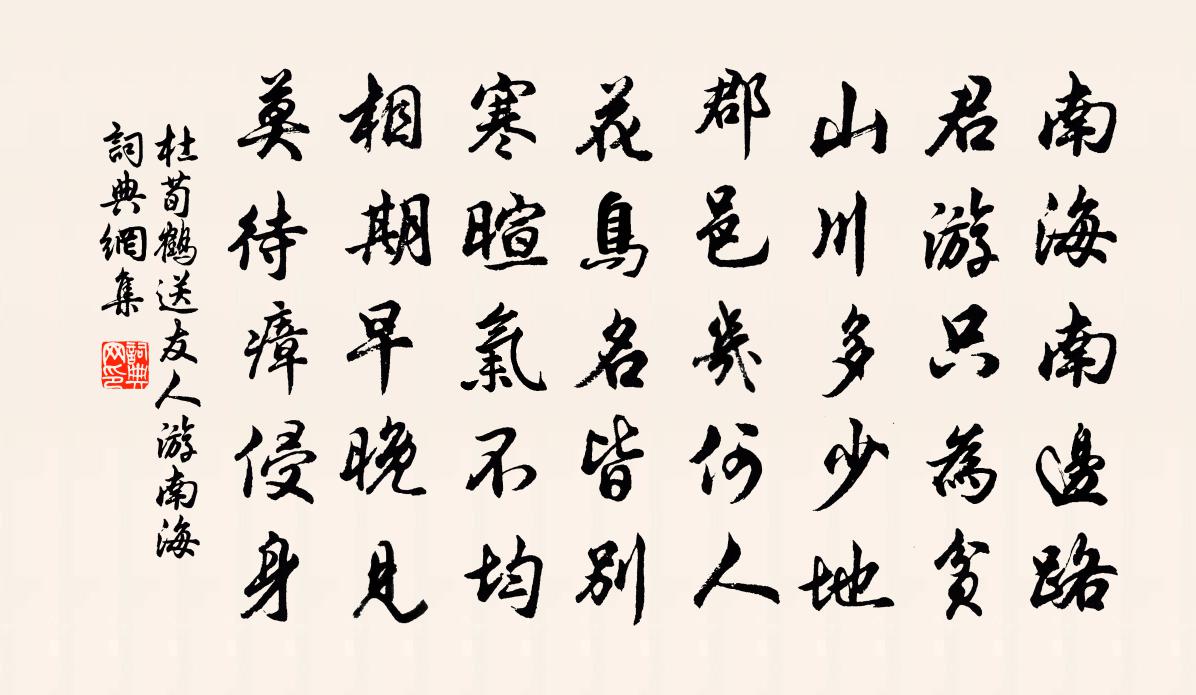 南海南邊路
君游只為貧
山川多少地
郡邑幾何人
花鳥名皆別
寒暄氣不均
相期早晚見
莫待瘴侵身
杜荀鶴送友人游南海
詞典網集
詞典網印